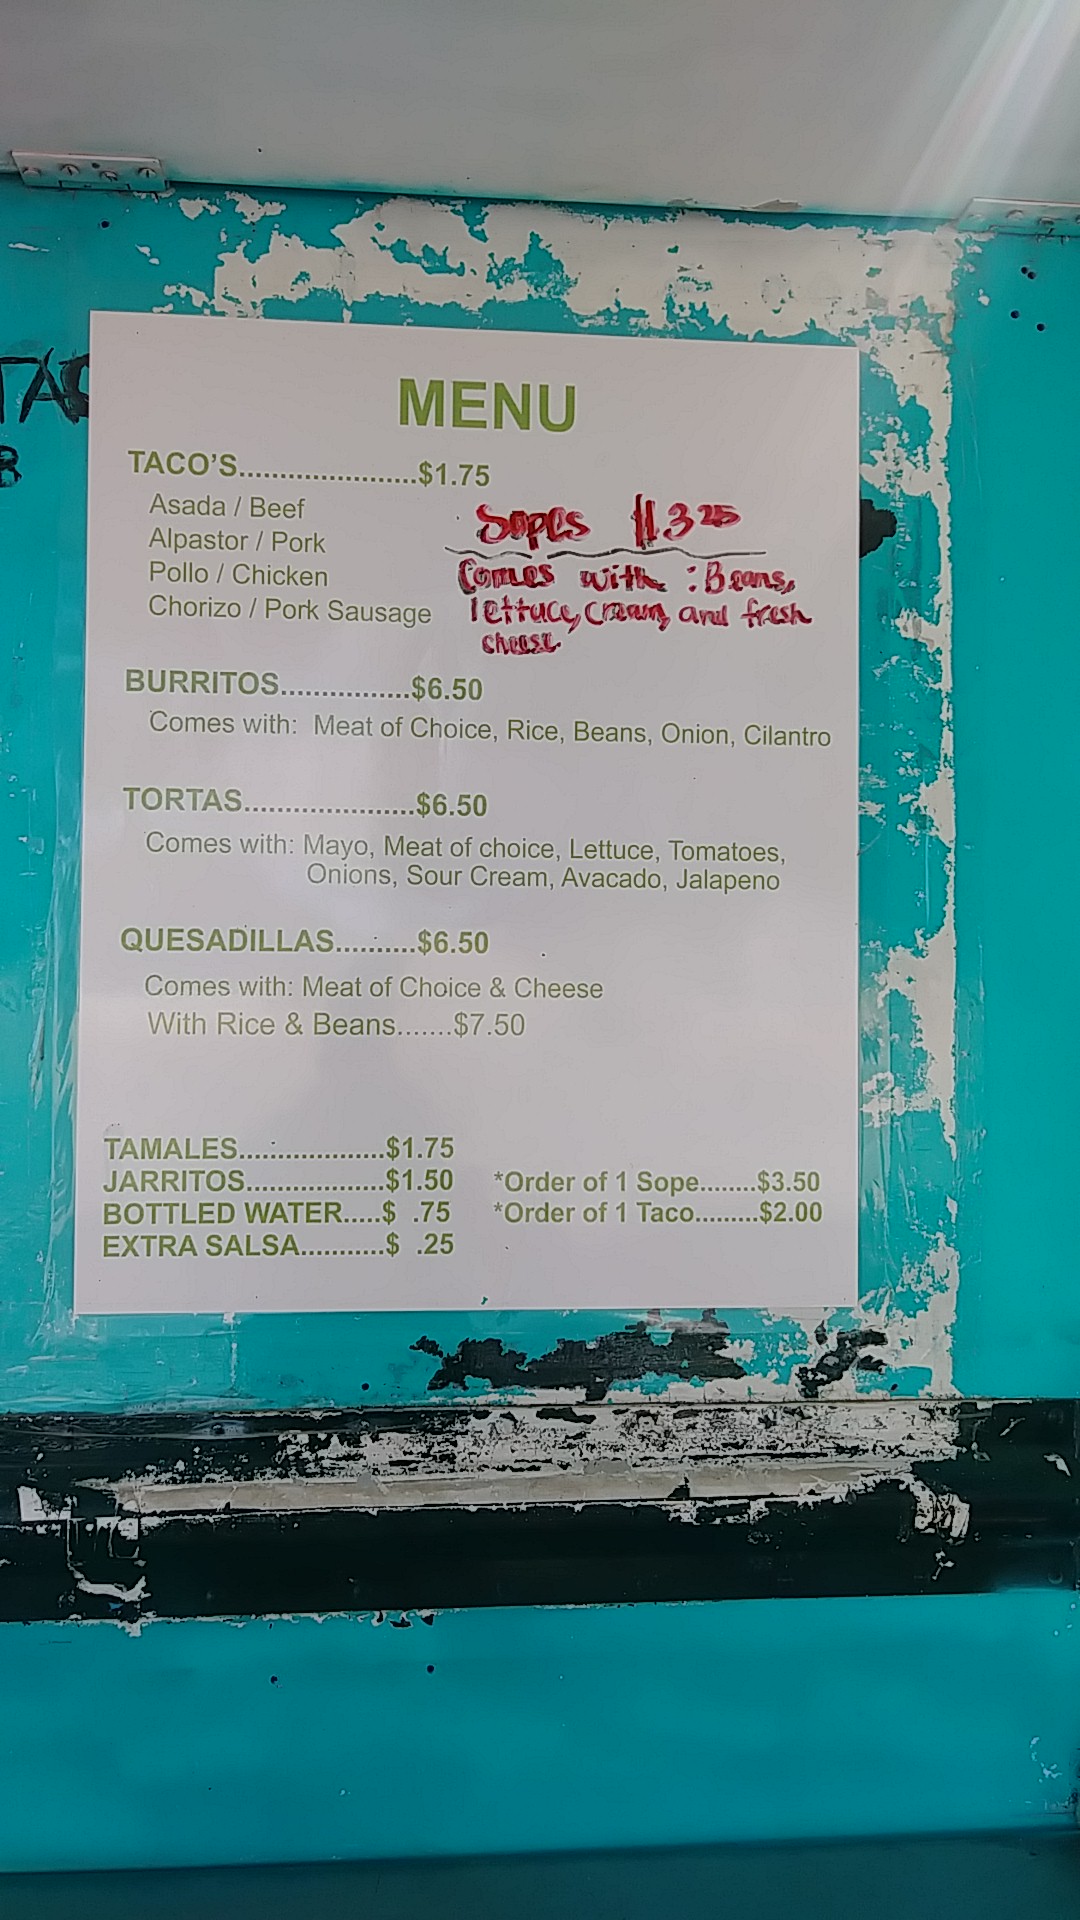 MENU
TACO'S......................$1.75
Asada / Beef
Alpastor / Pork
Pollo / Chicken
Chorizo / Pork Sausage
Sopes $3.25
Comes with : Beans,
lettuce, cream, and fresh
cheese.
BURRITOS................$6.50
Comes with: Meat of Choice, Rice, Beans, Onion, Cilantro
TORTAS.....................$6.50
Comes with: Mayo, Meat of choice, Lettuce, Tomatoes,
Onions, Sour Cream, Avacado, Jalapeno
QUESADILLAS..........$6.50
Comes with: Meat of Choice & Cheese
With Rice & Beans.......$7.50
TAMALES..................$1.75
JARRITOS.................$1.50
BOTTLED WATER.....$ .75
EXTRA SALSA...........$ .25
*Order of 1 Sope........$3.50
*Order of 1 Taco.........$2.00